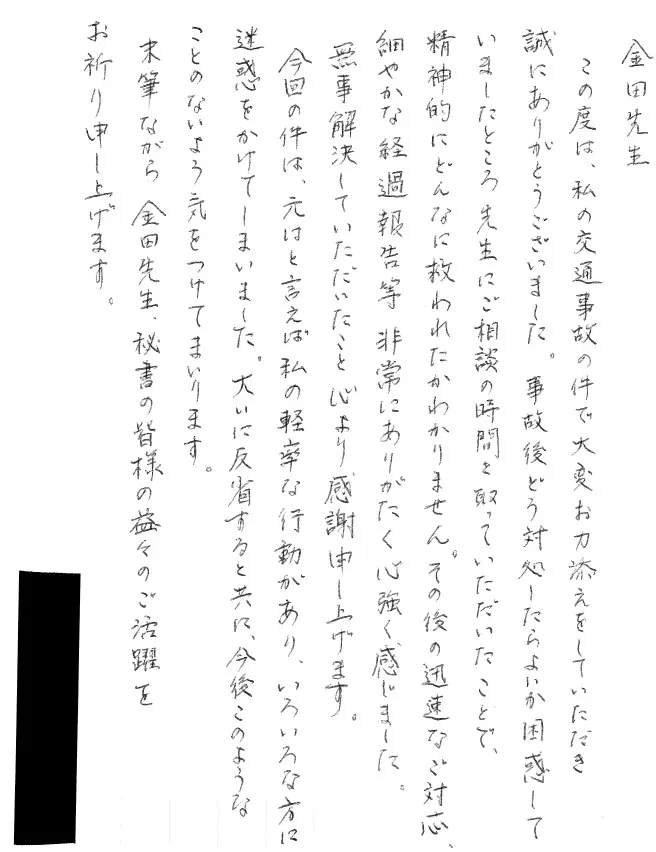 金田先生
この度は、私の交通事故の件で大変お力添えをしていただき
誠にありがとうございました。事故後どう対処したらよいか困惑して
いましたところ先生にご相談の時間を取っていただいたことで、
精神的にどんなに救われたかわかりません。その後の迅速なご対応、
細やかな経過報告等非常にありがたく心強く感じました。
無事解決していただいたこと心より感謝申し上げます。
今回の件は、元はと言えば私の軽率な行動があり、いろいろな方に
迷惑をかけてしまいました。大いに反省すると共に、今後このような
ことのないよう気をつけてまいります。
末筆ながら金田先生、秘書の皆様の益々のご活躍を
お祈り申し上げます。